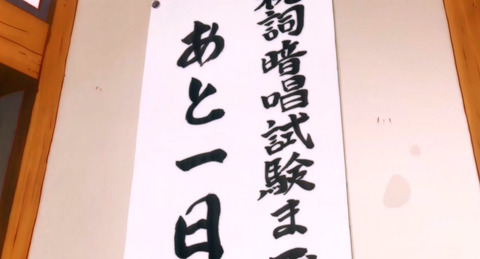 祝詞暗唱試験まで
あと一日